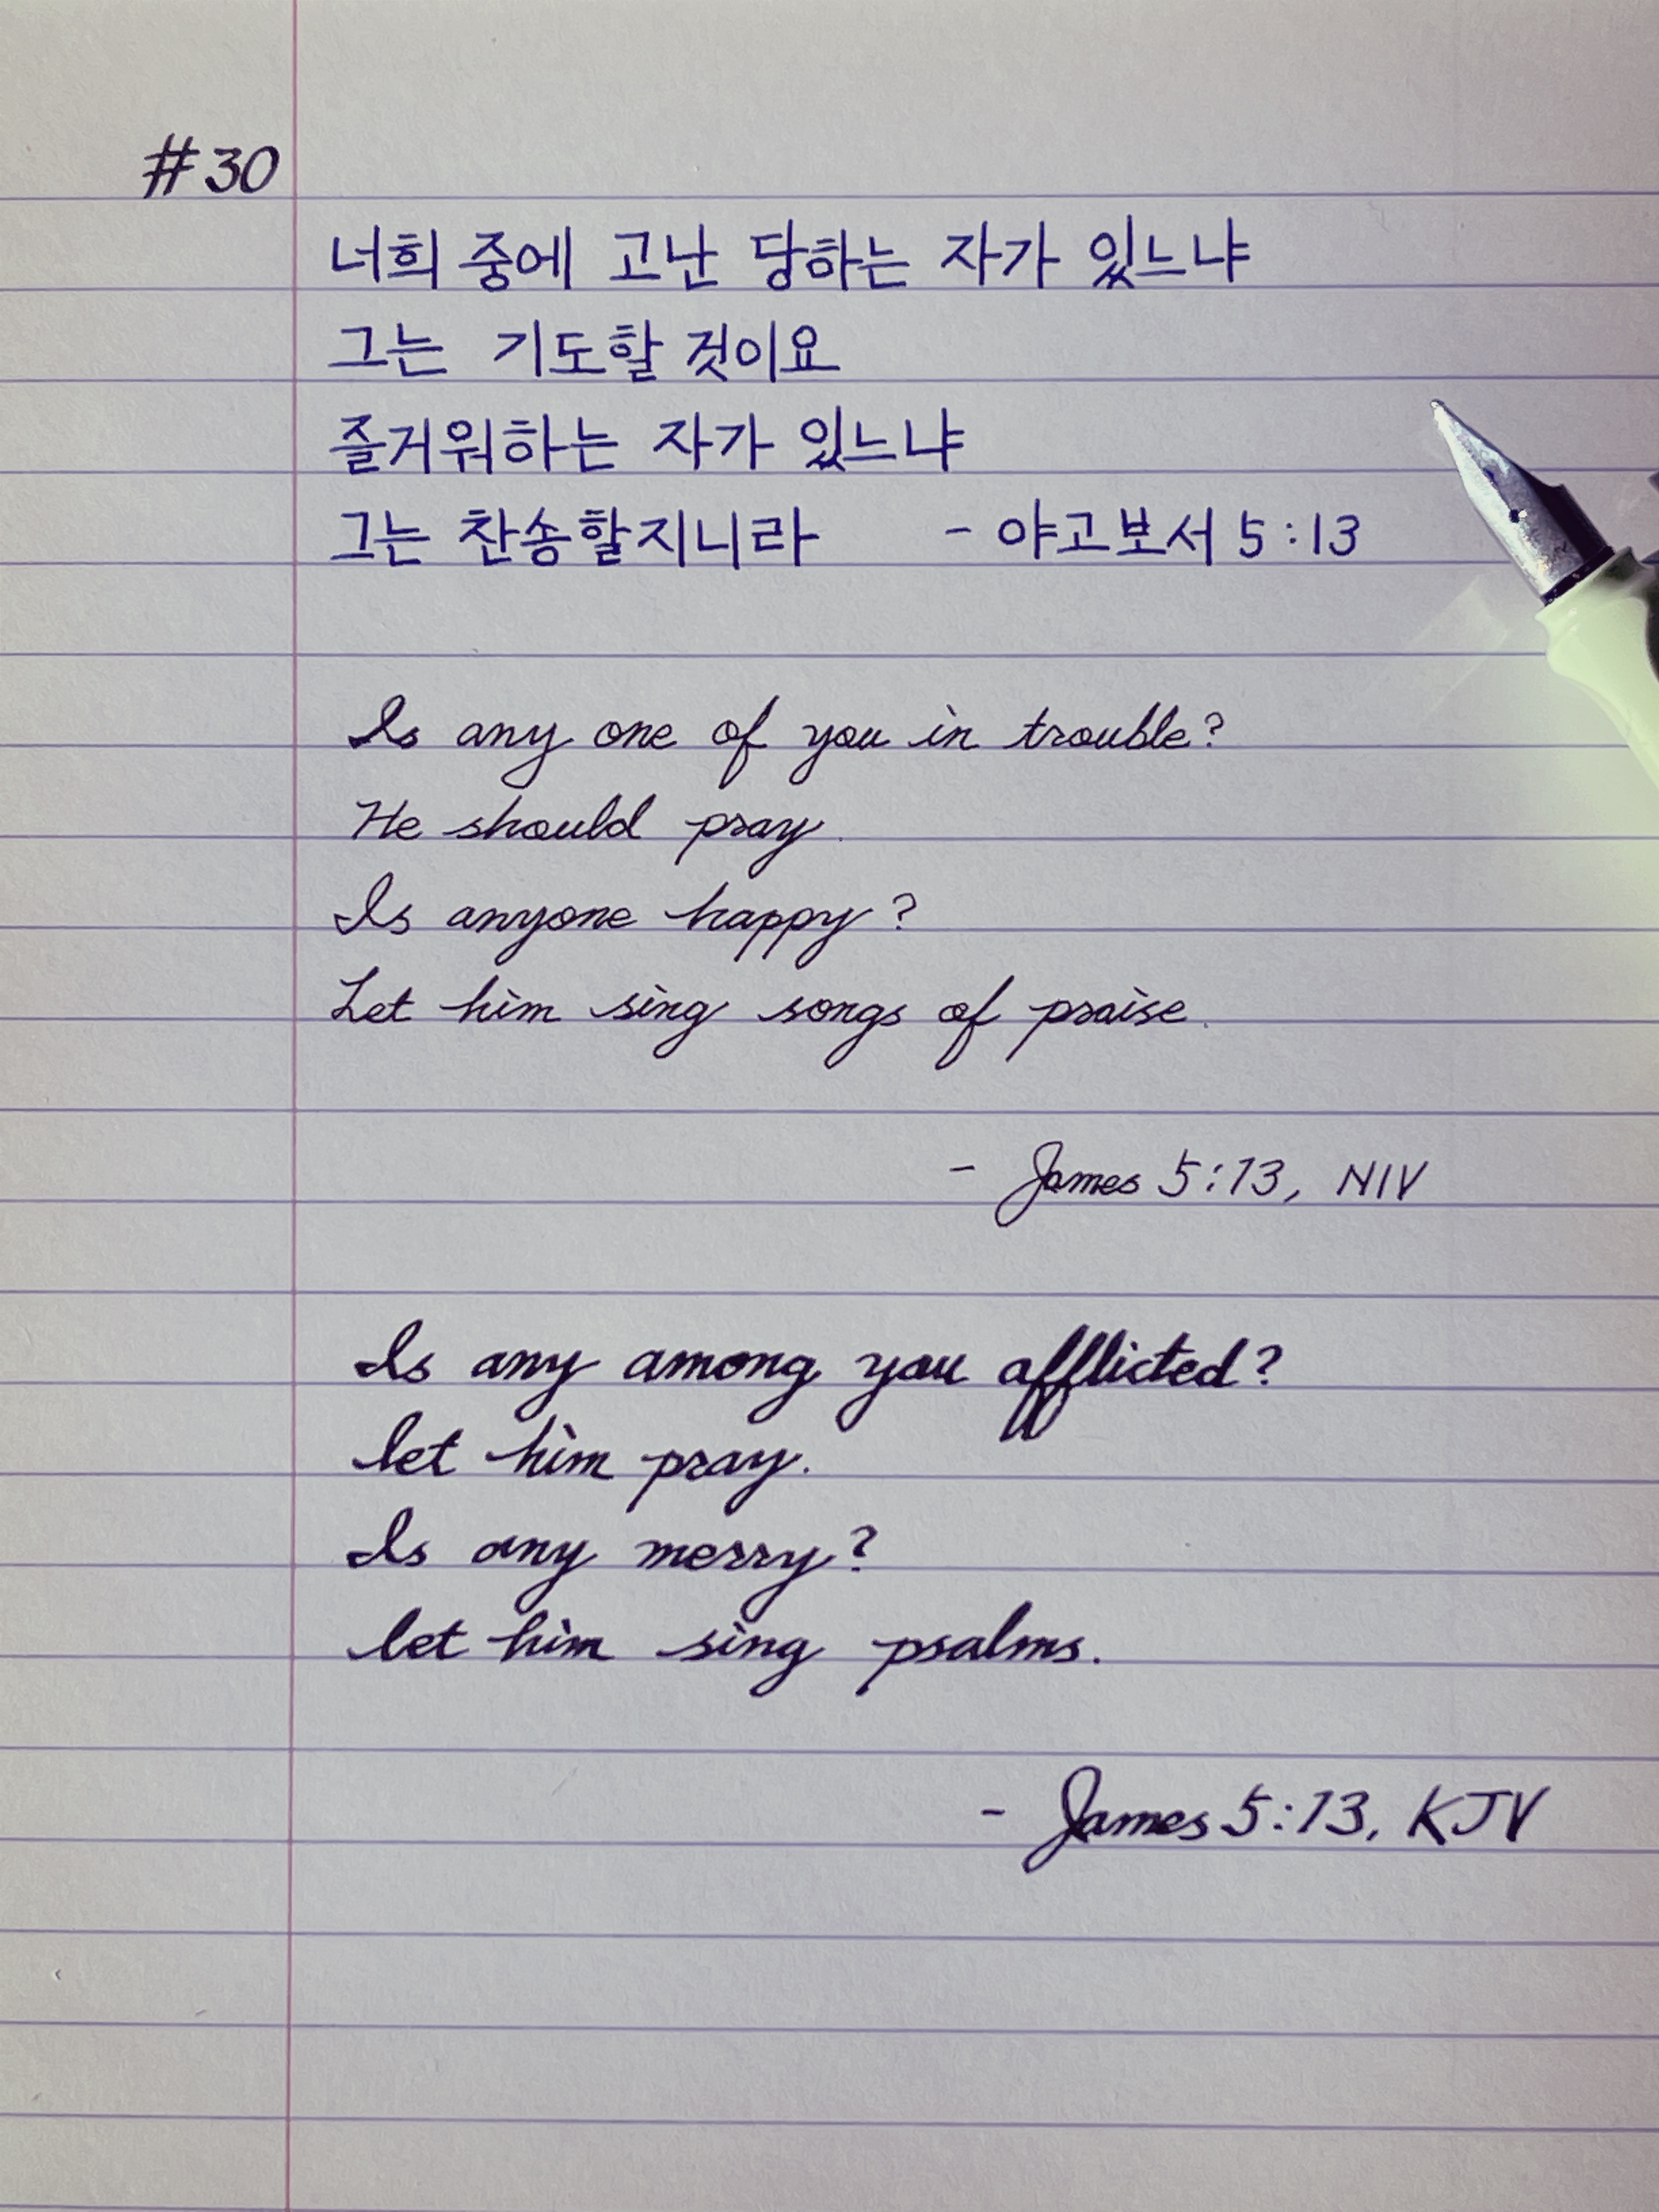 #30
너희 중에 고난 당하는 자가 있느냐
그는 기도할 것이요
즐거워하는 자가 있느냐
그는 찬송할지니라 - 야고보서 5:13
Is any one of you in trouble?
He should pray.
Is anyone happy?
Let him sing songs of praise.
- James 5:13, NIV
Is any among you afflicted?
let him pray.
Is any merry?
let him sing psalms.
- James 5:13, KJV